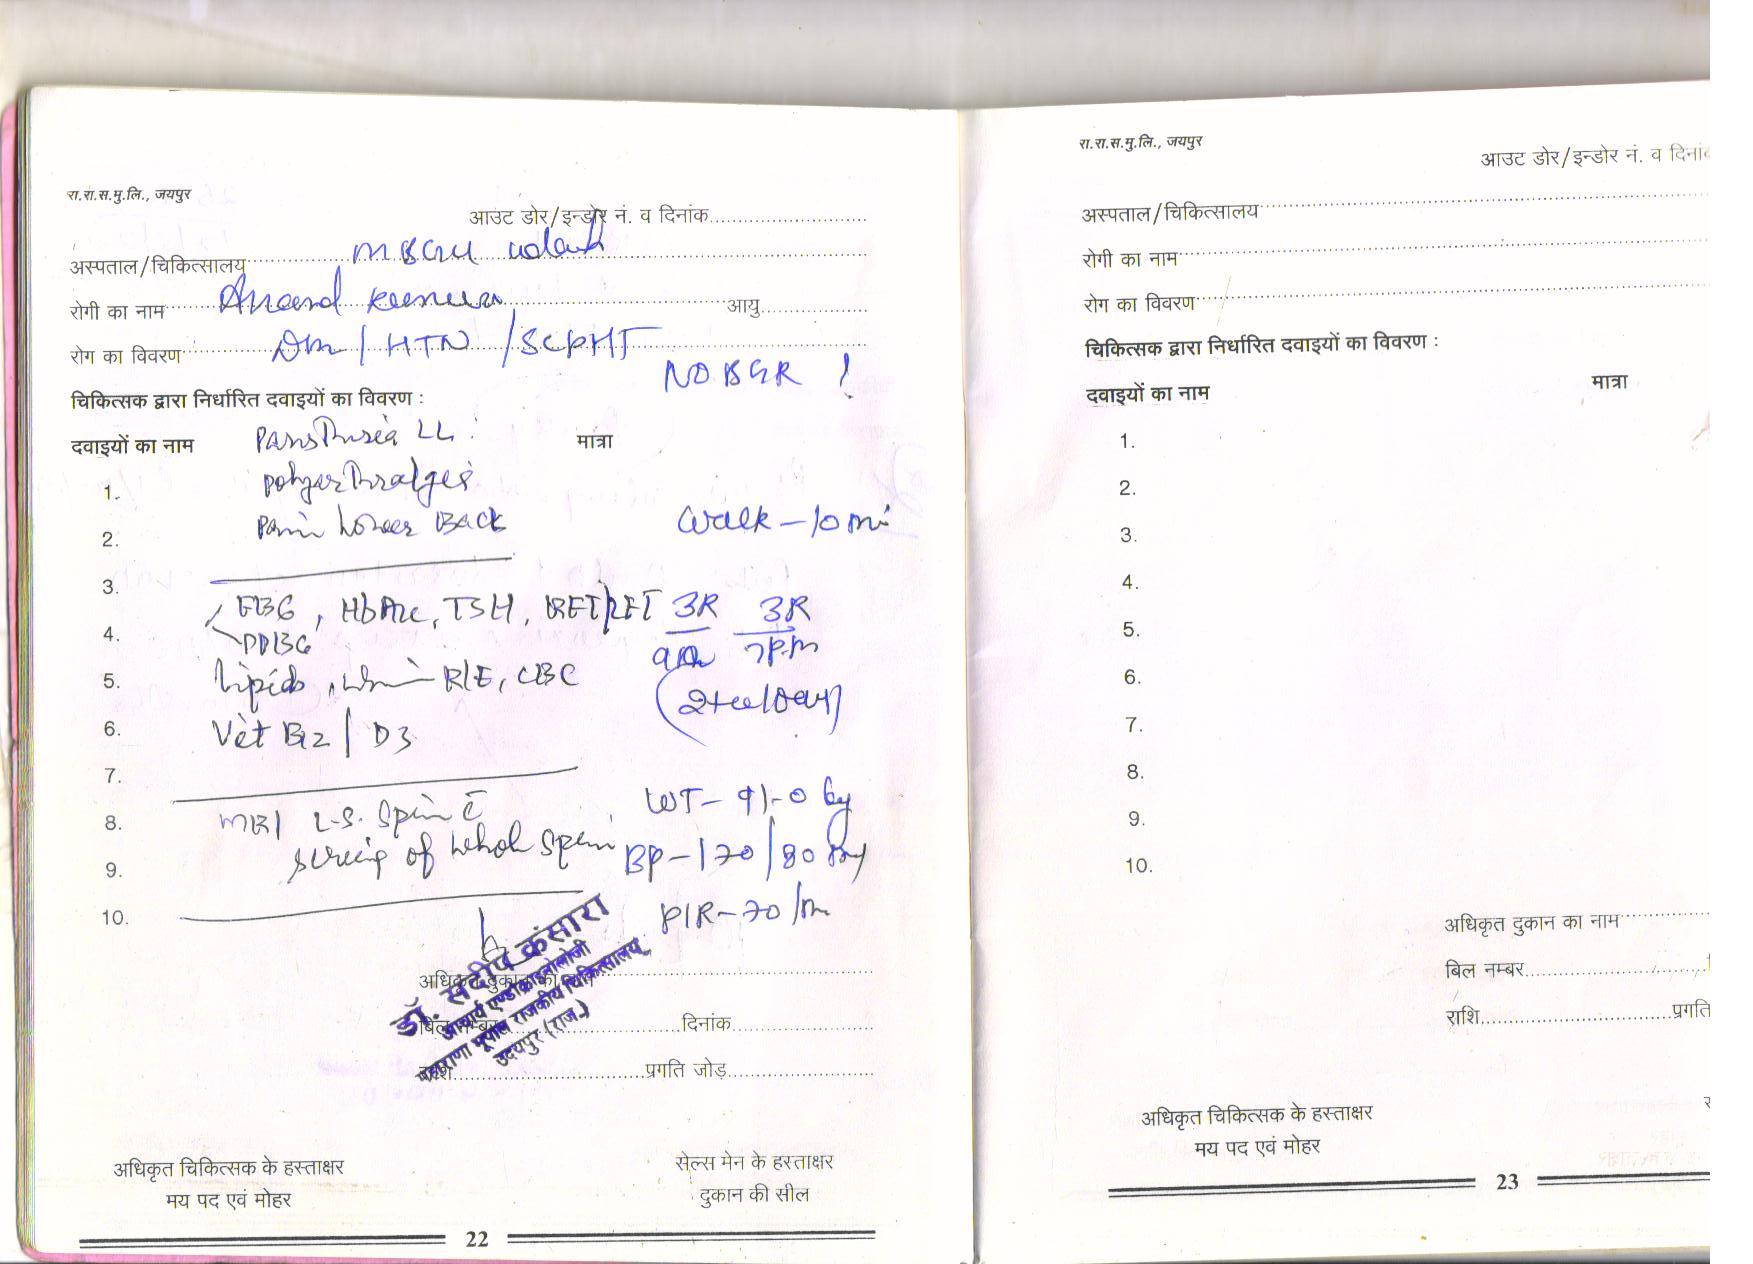 रा.रा.स.मु.लि., जयपुर
आउट डोर/इन्डोर नं. व दिनांक
अस्पताल/चिकित्सालय MBGH
रोगी का नाम Anand Kumar आयु
रोग का विवरण DM / HTN / SCPHT
NO BGR !
चिकित्सक द्वारा निर्धारित दवाइयों का विवरण :
दवाइयों का नाम मात्रा
LL
1.
2. Pain Lower Back Walk - 10 mi
3.
4. FBG, HbA1c, TSH, RFT/LFT 3R 3R
PPBG 7PM
5. Lipids, R/E, CBC
6. Vit B12 / D3
7.
WT - 91.0 kg
8. MRI L.S. Spine c̄
9. of whole spine BP - 170/80
10. P/R - 70/m
डॉ. संदीप कंसारा
आचार्य एण्डोक्राइनोलोजी
महाराणा भूपाल राजकीय चिकित्सालय
उदयपुर (राज.)
दिनांक
प्रगति जोड़
अधिकृत चिकित्सक के हस्ताक्षर सेल्स मेन के हस्ताक्षर
मय पद एवं मोहर दुकान की सील
22
रा.रा.स.मु.लि., जयपुर
आउट डोर/इन्डोर नं. व
अस्पताल/चिकित्सालय
रोगी का नाम
रोग का विवरण
चिकित्सक द्वारा निर्धारित दवाइयों का विवरण :
दवाइयों का नाम मात्रा
1.
2.
3.
4.
5.
6.
7.
8.
9.
10.
अधिकृत दुकान का नाम
बिल नम्बर
राशि
अधिकृत चिकित्सक के हस्ताक्षर
मय पद एवं मोहर
23